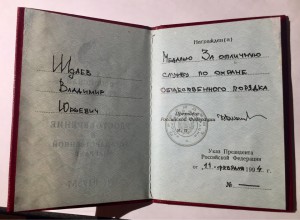 Шулев
Владимир
Юрьевич
Награжден(а)
Медалью За отличную
службу по охране
общественного порядка
Президент
Российской Федерации
Указ Президента
Российской Федерации
февраля 1994 г.
№ —